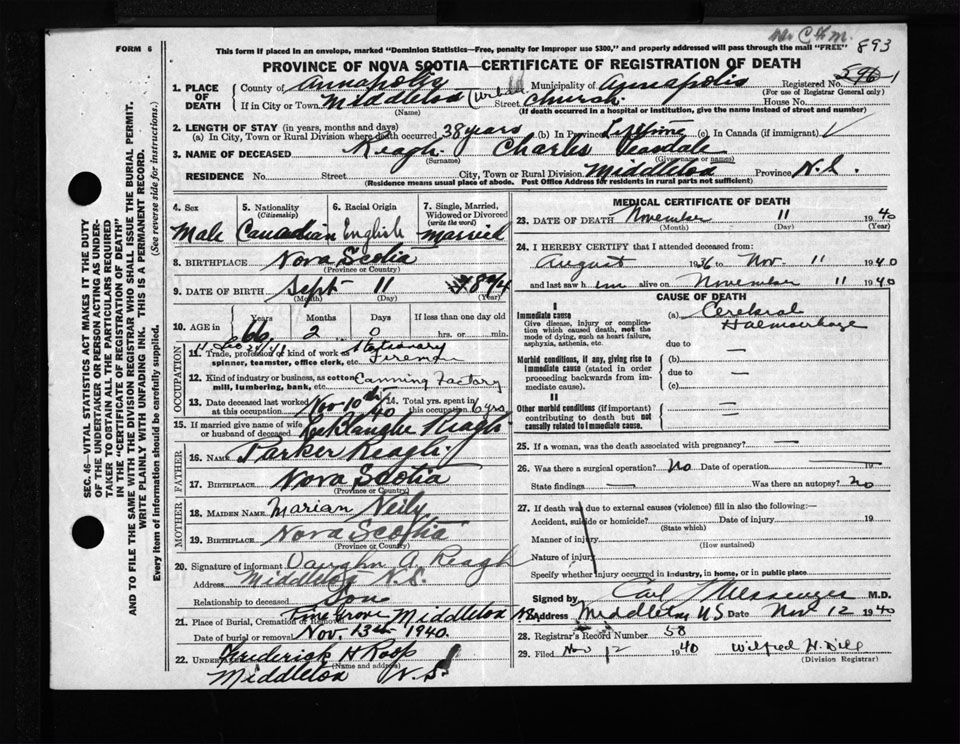 893
FORM 6
This form if placed in an envelope, marked "Dominion Statistics—Free, penalty for improper use $300," and properly addressed will pass through the mail "FREE"
PROVINCE OF NOVA SCOTIA—CERTIFICATE OF REGISTRATION OF DEATH
1. PLACE OF DEATH
County of Annapolis Municipality of Annapolis Registered No. 596
(For use of Registrar General only)
If in City or Town Middleton Street Church House No.
(Name) (If death occurred in a hospital or institution, give the name instead of street and number)
2. LENGTH OF STAY (in years, months and days)
(a) In City, Town or Rural Division where death occurred 38 years (b) In Province Lifetime (c) In Canada (if immigrant)
3. NAME OF DECEASED Reagh Charles
(Surname) (Given name or names)
RESIDENCE No. Street City, Town or Rural Division Middleton Province N.S.
(Residence means usual place of abode. Post Office Address for residents in rural parts not sufficient)
4. Sex Male
5. Nationality (Citizenship) Canadian
6. Racial Origin English
7. Single, Married, Widowed or Divorced (write the word) Married
8. BIRTHPLACE Nova Scotia
(Province or Country)
9. DATE OF BIRTH Sept 11 1874
(Month) (Day) (Year)
10. AGE in Years Months Days If less than one day old
66 2 0 hrs. or min.
OCCUPATION
11. Trade, profession or kind of work as spinner, teamster, office clerk, etc. Stationary Fireman
12. Kind of industry or business, as cotton mill, lumbering, bank, etc. Canning Factory
13. Date deceased last worked at this occupation Nov 10th 40
14. Total yrs. spent in this occupation 6 yrs
15. If married give name of wife or husband of deceased Reagh
FATHER
16. NAME Parker Reagh
17. BIRTHPLACE Nova Scotia
(Province or Country)
MOTHER
18. MAIDEN NAME Marian Neily
19. BIRTHPLACE Nova Scotia
(Province or Country)
20. Signature of informant Vaughn A. Reagh
Address Middleton N.S.
Relationship to deceased Son
21. Place of Burial, Cremation or Removal Pine Grove Middleton NS
Date of burial or removal Nov. 13th 1940.
22. UNDERTAKER Frederick H Roop
(Name and address)
Middleton N.S.
MEDICAL CERTIFICATE OF DEATH
23. DATE OF DEATH November 11 1940
(Month) (Day) (Year)
24. I HEREBY CERTIFY that I attended deceased from:
August 1936 to Nov. 11 1940
and last saw h im alive on November 11 1940
CAUSE OF DEATH
I
Immediate cause
Give disease, injury or complication which caused death, not the mode of dying, such as heart failure, asphyxia, asthenia, etc.
(a) Cerebral Haemorrhage
due to
Morbid conditions, if any, giving rise to immediate cause (stated in order proceeding backwards from immediate cause).
(b)
due to
(c)
II
Other morbid conditions (if important) contributing to death but not causally related to immediate cause.
25. If a woman, was the death associated with pregnancy?
26. Was there a surgical operation? No Date of operation 19
State findings Was there an autopsy? no
27. If death was due to external causes (violence) fill in also the following:—
Accident, suicide or homicide? Date of injury 19
(State which)
Manner of injury
(How sustained)
Nature of injury
Specify whether injury occurred in industry, in home, or in public place
Signed by Carl Messenger M.D.
Address Middleton NS Date Nov 12 1940
28. Registrar's Record Number 58
29. Filed Nov 12 1940 Wilfred H. Dill
(Division Registrar)
SEC. 46—VITAL STATISTICS ACT MAKES IT THE DUTY OF THE UNDERTAKER OR PERSON ACTING AS UNDERTAKER TO OBTAIN ALL THE PARTICULARS REQUIRED IN THE "CERTIFICATE OF REGISTRATION OF DEATH" AND TO FILE THE SAME WITH THE DIVISION REGISTRAR WHO SHALL ISSUE THE BURIAL PERMIT.
WRITE PLAINLY WITH UNFADING INK. THIS IS A PERMANENT RECORD.
Every item of Information should be carefully supplied. (See reverse side for instructions.)